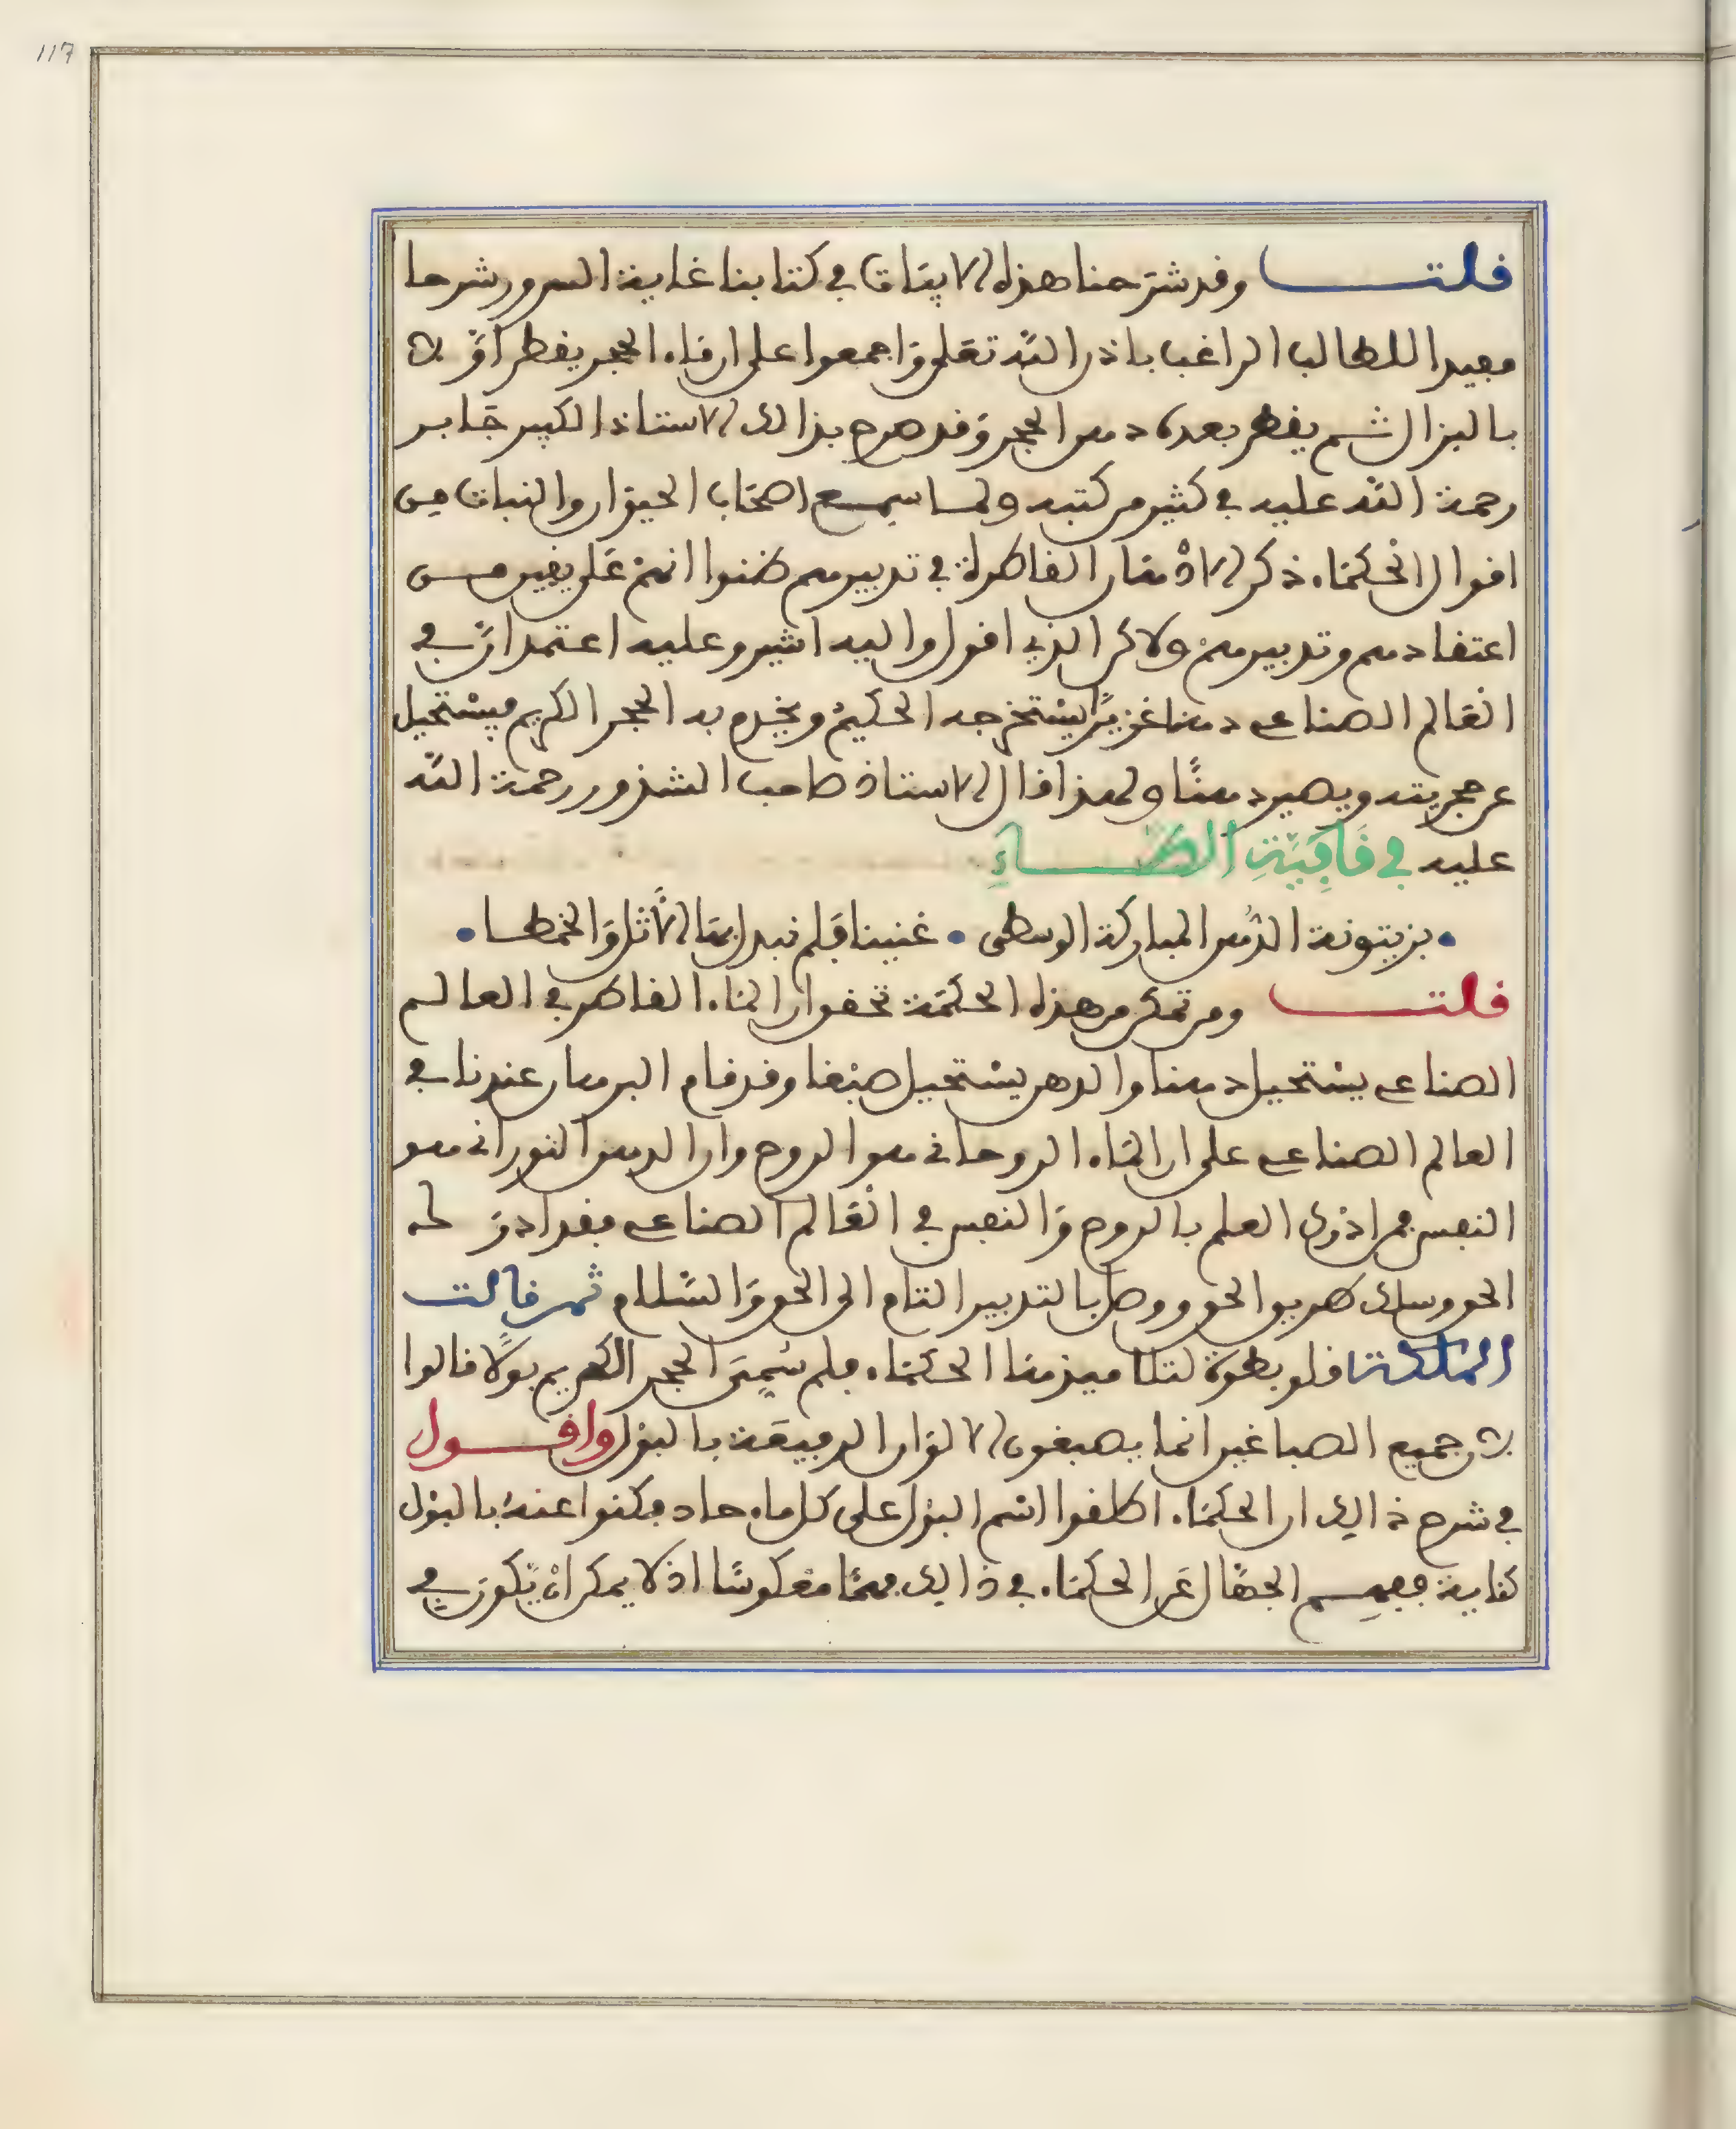 117
قلت وقد شرحنا هذه الابيات في كتابنا غاية السرور شرحا
مفيدا للطالب الراغب باذن الله تعلى واجمعوا على ان ماء الحجر يقطر اولا
بالبزال ثم يقطر بعده دهن الحجر وقد صرح بذالك الاستاذ الكبير جابر
رحمة الله عليه في كثير من كتبه ولما سمع اصحاب الحيوان والنبات من
اقوال الحكماء ذكر الادهان القاطرة في تدبيرهم ظنوا انهم على يقين من
اعتقادهم وتدبيرهم ولاكن الذي اقول واليه اشير وعليه اعتمد ان في
العالم الصناعي دهنا غزيرا يستخرجه الحكيم ويخدم به الحجر الكريم فيستحيل
عن حجريته ويصير دهنا ولهذا قال الاستاذ صاحب الشذور رحمة الله
عليه في قافية الطاء
• بزيتونة الدهن المباركة الوسطى • غنينا فلم نبدل بها الاثل والخمطا •
قلت ومن تمكن من هذه الحكمة تحقق ان الماء القاطر في العالم
الصناعي يستحيل دهنا والدهن يستحيل صبغا وقد قام البرهان عندنا في
العالم الصناعي على ان الماء الروحاني هو الروح وان الدهن النوراني هو
النفس فمن اذرك العلم بالروح والنفس في العالم الصناعي فقد ادرك
الحق وسلك طريق الحق ووصل بالتدبير التام الى الحق والسلام ثم قالت
الملكة قلوبطرة لتلاميذها الحكماء فلم سمي الحجر الكريم بولا قالوا
لان جميع الصباغين انما يصبغون الالوان الرفيعة بالبول واقول
في شرح ذالك ان الحكماء اطلقوا اسم البول على كل ماء حاد فكنوا عنه بالبول
كناية ففهم الجهال عن الحكماء في ذالك فهما معكوسا اذ لا يمكن ان يكون في